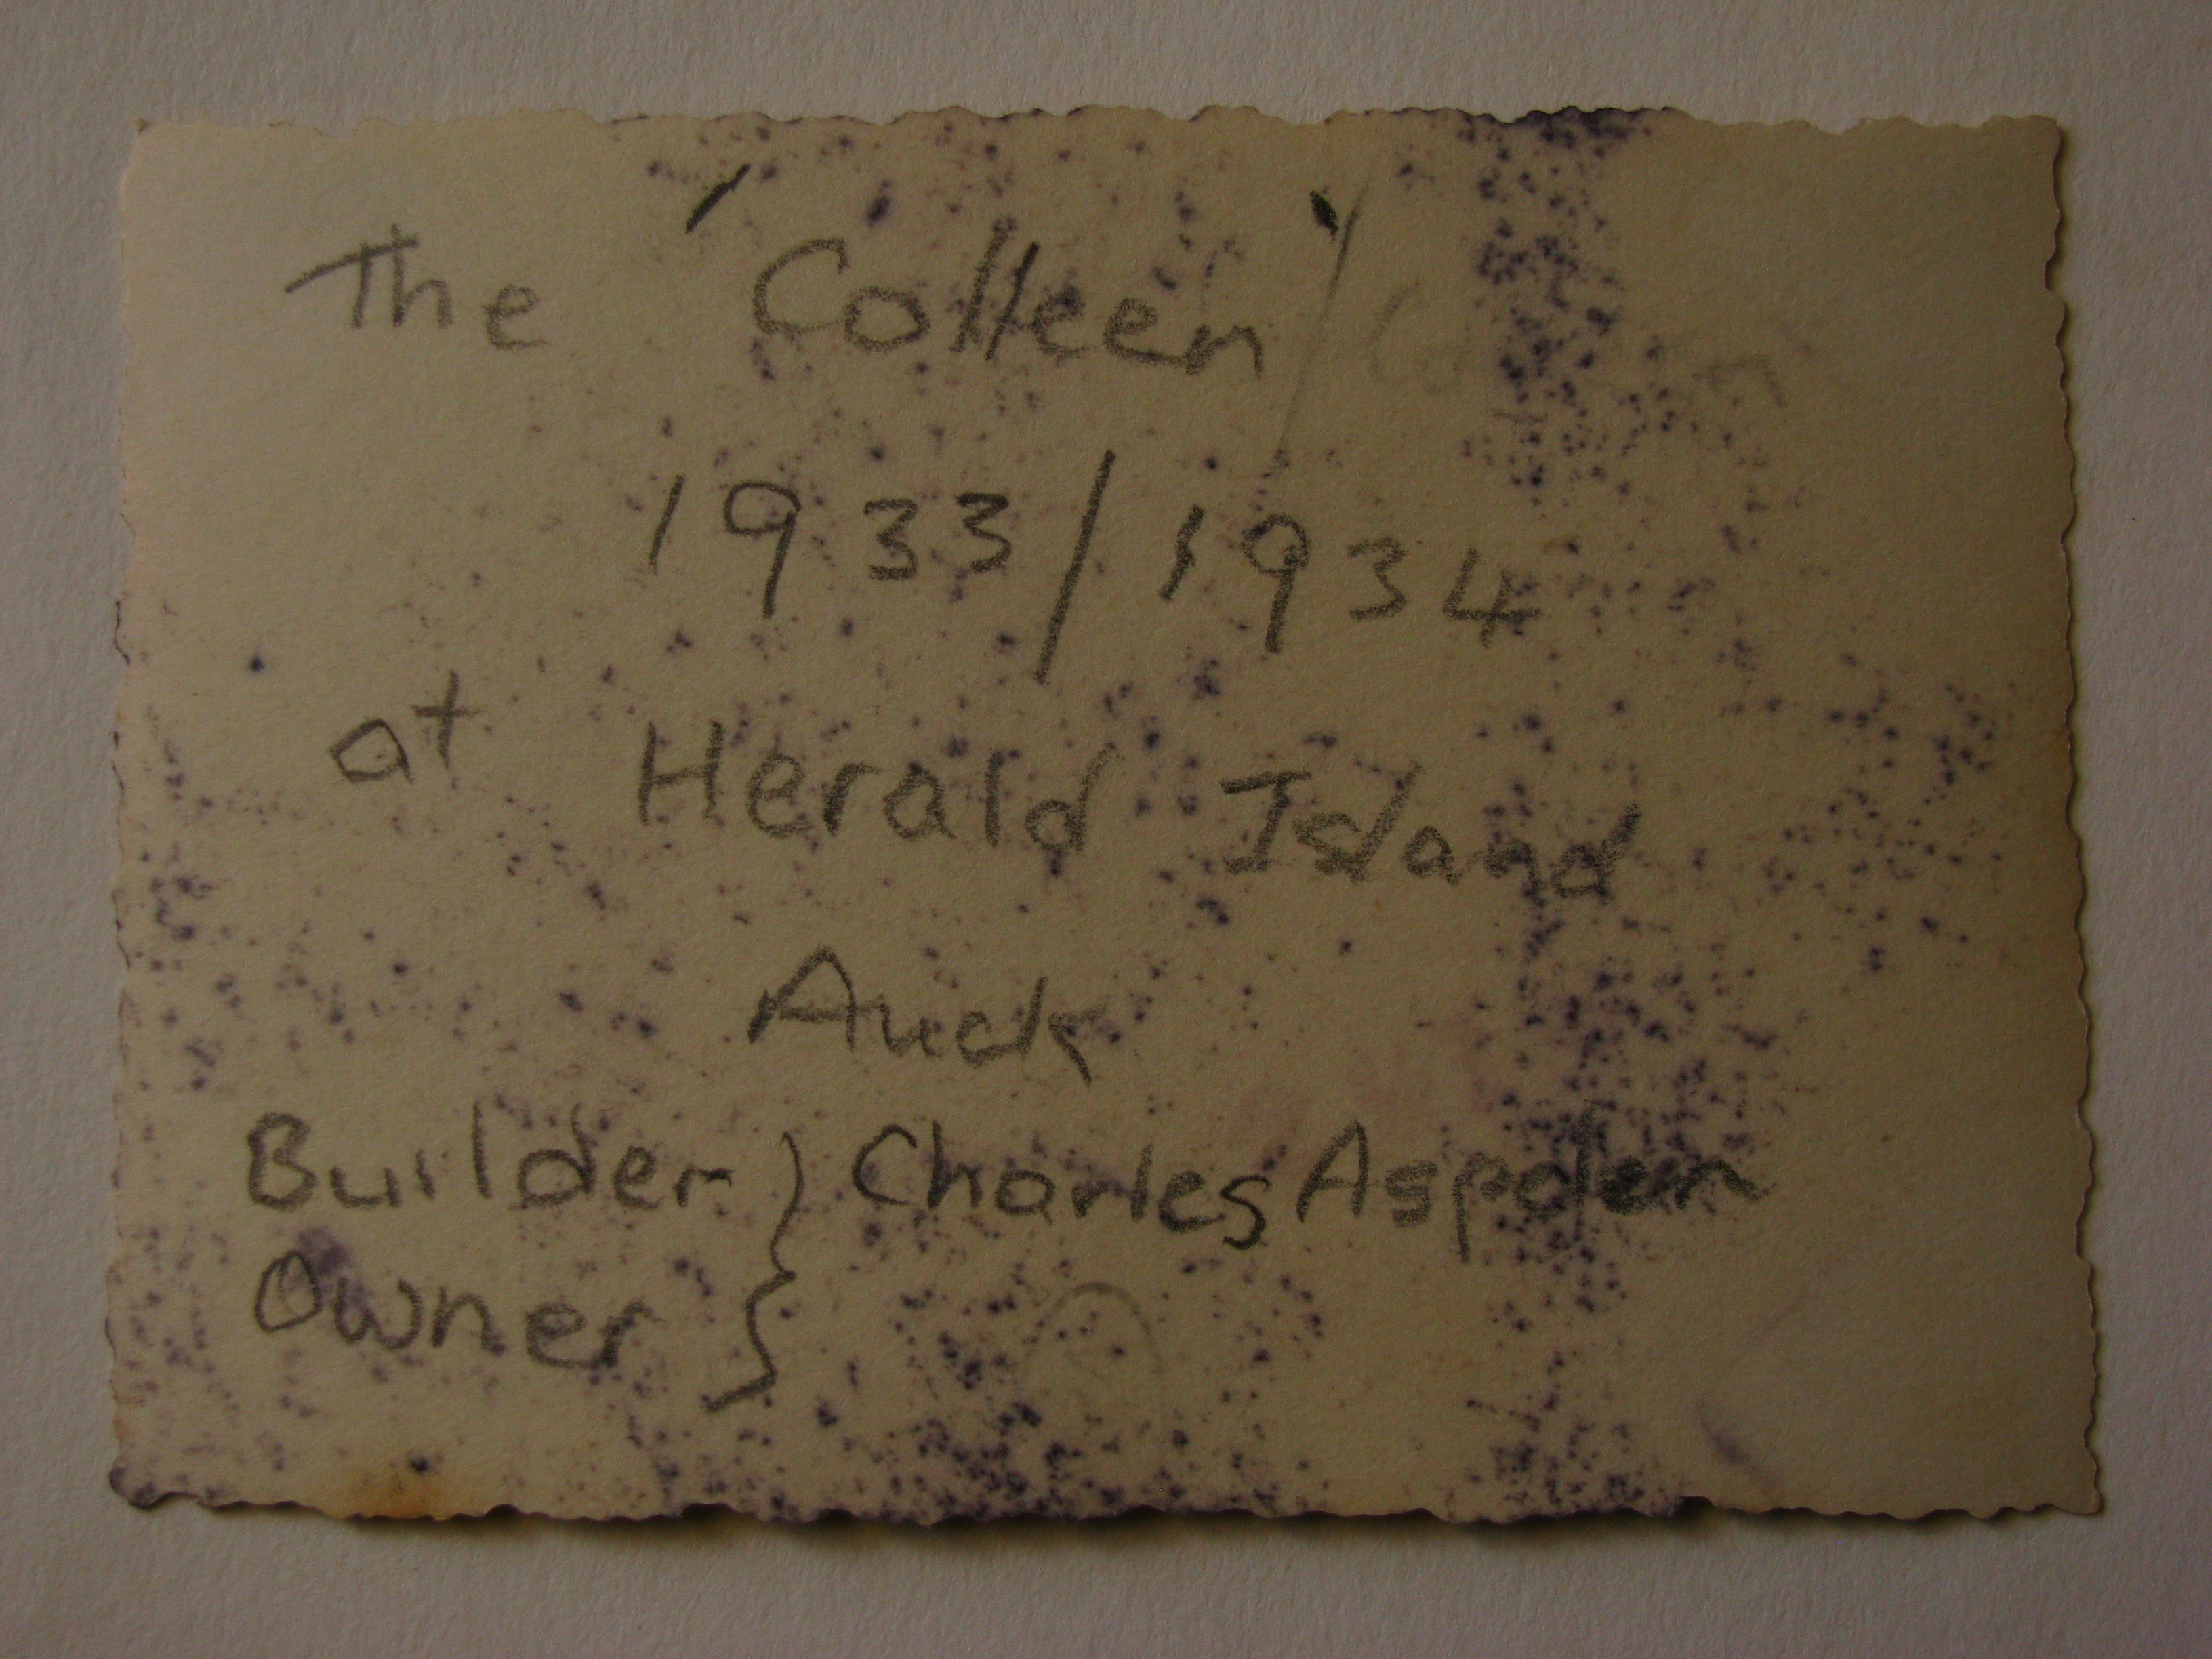 The 'Colleen'
1933/1934
at Herald Island
Auck
Builder } Charles Aspden
Owner